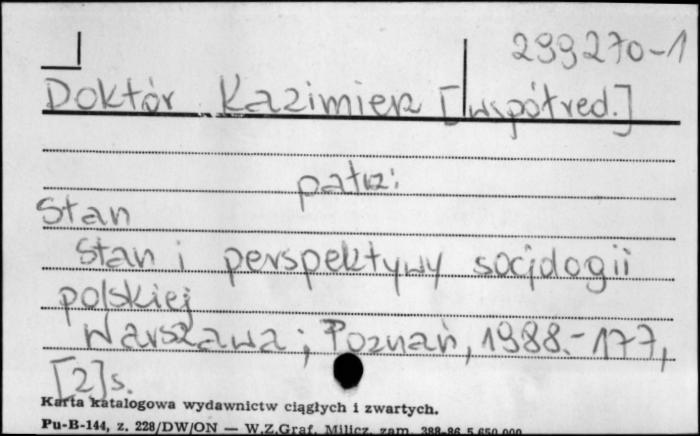 299270-1
Doktór Kazimierz [współred.]
patrz:
Stan
Stan i perspektywy socjologii
polskiej
Warszawa ; Poznań, 1988.- 177,
[2]s.
Karta katalogowa wydawnictw ciągłych i zwartych.
Pu-B-144, z. 228/DW/ON — W.Z.Graf. Milicz, zam. 388-86 5.650.000